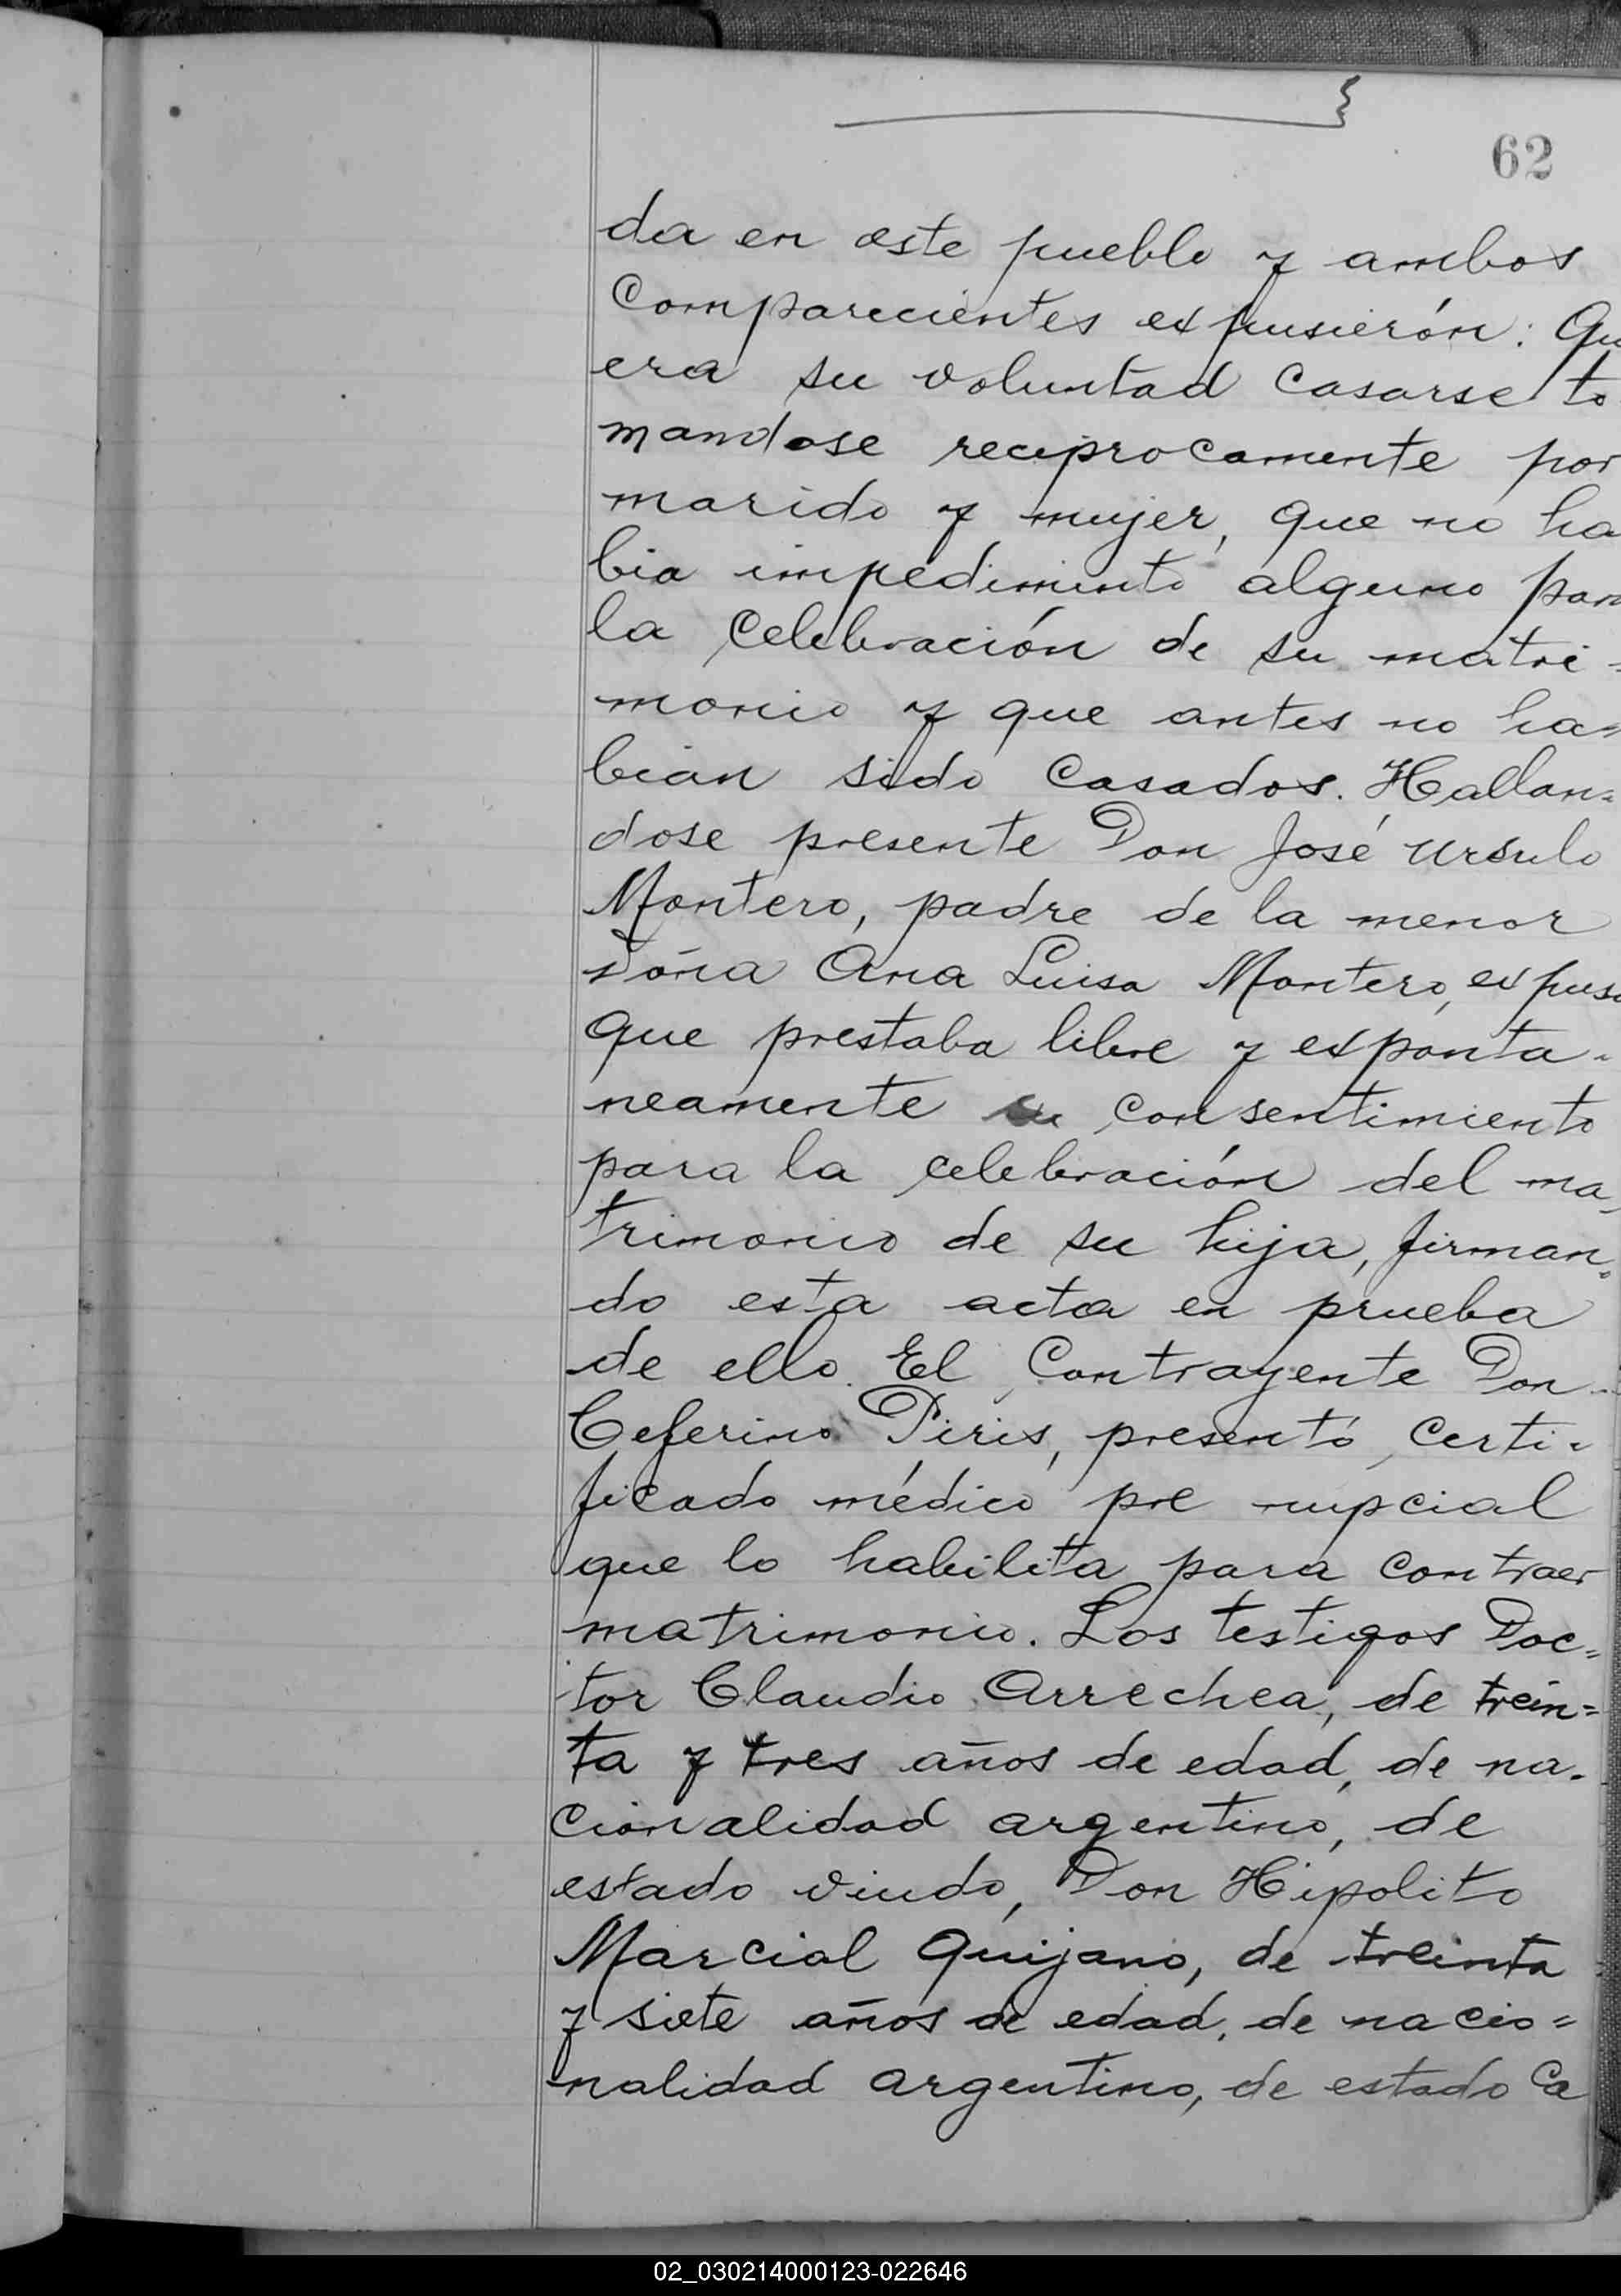 62
da en este pueblo y ambos
Comparecientes expusierón: Qu
era su voluntad casarse to
mandose reciprocamente por
marido y mujer, que no ha
bia impedimento alguno para
la celebración de su matri=
monio y que antes no ha=
bian sido casados. Hallan=
dose presente Don José Ursulo
Montero, padre de la menor
Doña Ana Luisa Montero, expuso
que prestaba libre y exponta-
neamente su consentimiento
para la celebración del ma-
trimonio de su hija, firman-
do esta acta en prueba
de ello. El Contrayente Don
Ceferino Piris, presentó certi-
ficado médico pre nupcial
que lo habilita para contraer
matrimonio. Los testigos Doc=
tor Claudio Arrechea, de trein=
ta y tres años de edad, de na-
cionalidad argentino, de
estado viudo, Don Hipolito
Marcial Quijano, de treinta
y siete años de edad, de nacio=
nalidad argentino, de estado Ca
02_030214000123-022646